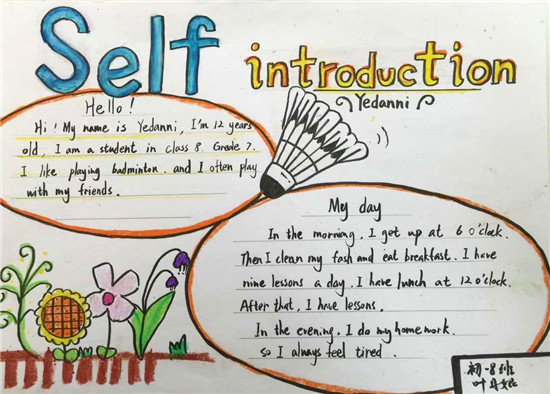 Self introduction
Yedanni
Hello!
Hi! My name is Yedanni, I'm 12 years
old, I am a student in class 8. Grade 7.
I like playing badminton. and I often play
with my friends.
My day
In the morning. I get up at 6 o'clock.
Then I clean my fash and eat breakfast. I have
nine lessons a day. I have lunch at 12 o'clock.
After that, I have lessons.
In the evening. I do my home work.
so I always feel tired.
初一8班
叶丹妮